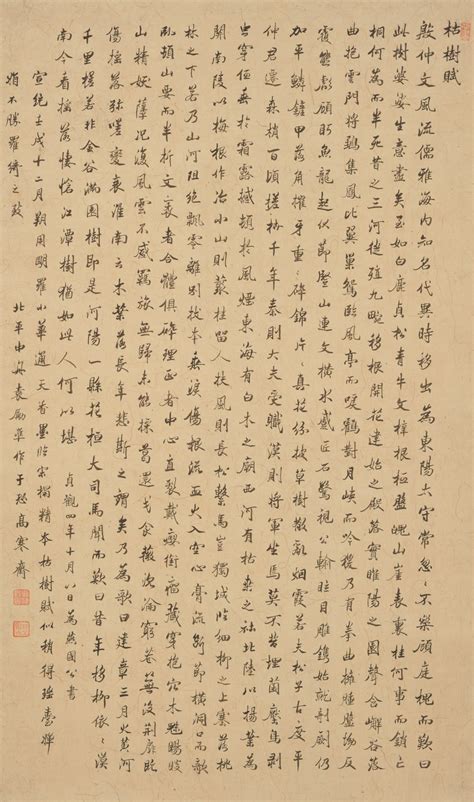 枯樹賦
殷仲文風流儒雅海內知名代異時移出為東陽太守常忽忽不樂顧庭槐而歎曰
此樹婆娑生意盡矣至如白鹿貞松青牛文梓根柢盤魄山崖表裏桂何事而銷亡
桐何為而半死昔之三河徙殖九畹移根開花建始之殿落實睢陽之園聲含嶰谷
曲抱雲門將鶵集鳳比翼巢鴛臨風亭而唳鶴對月峽而吟猨乃有拳曲擁腫盤坳反
覆熊彪顧盼魚龍起伏節豎山連文橫水蹙匠石驚視公輸眩目雕鐫始就剞劂仍
加平鱗鏟甲落角摧牙重重碎錦片片真花紛披草樹散亂煙霞若夫松子古度平
仲君遷森梢百頃槎枿千年秦則大夫受職漢則將軍坐焉莫不苔埋菌壓鳥剥
蟲穿低垂於霜露撼頓於風煙東海有白木之廟西河有枯桑之社北陸以楊葉為
關南陵以梅根作冶小山則叢桂留人扶風則長松繫馬豈獨城臨細柳之上塞落桃
林之下若乃山河阻絕飄零離別拔本垂淚傷根流血火入空心膏流斷節橫洞口而欹
臥頓山要而半折文衰者合體俱碎理正者中心直裂戴癭銜瘤藏穿抱穴木魅睗睒
山精妖孽況復風雲不感羈旅無歸未能採葛還成食薇沈淪窮巷蕪沒荊扉既
傷搖落彌嗟變衰淮南云木葉落長年悲斯之謂矣乃為歌曰建章三月火黃河
千里槎若非金谷滿園樹即是河陽一縣花桓大司馬聞而歎曰昔年移柳依依漢
南今看搖落悽愴江潭樹猶如此人何以堪 貞觀四年十月八日為燕國公書
宣統壬戌十二月朔用明羅小華通天香墨臨宋搨精本枯樹賦似稍得瑤臺嬋
娟不勝羅綺之致
北平中舟袁勵準作于恐高寒齋